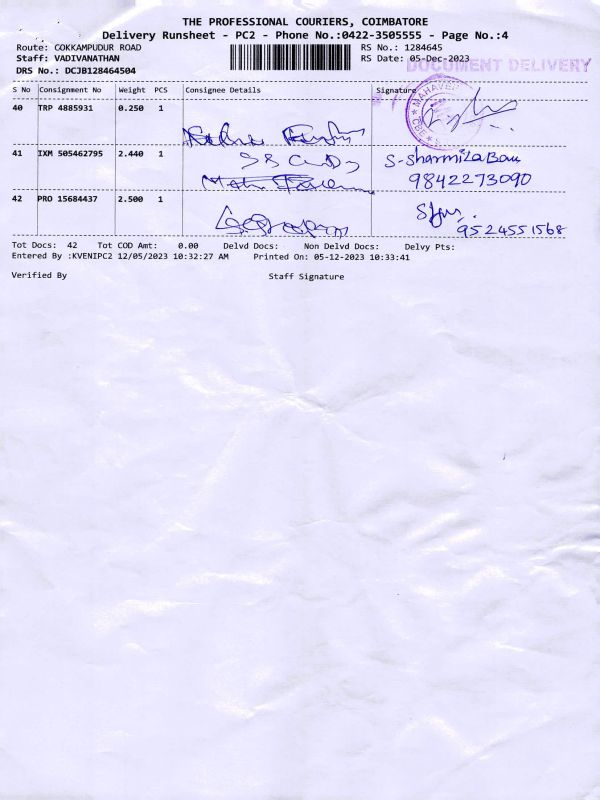 THE PROFESSIONAL COURIERS, COIMBATORE
Delivery Runsheet - PC2 - Phone No.:0422-3505555 - Page No.:4
Route: COKKAMPUDUR ROAD
RS No.: 1284645
Staff: VADIVANATHAN
RS Date: 05-Dec-2023
DOCUMENT DELIVERY
DRS No.: DCJB128464504
S No Consignment No Weight PCS Consignee Details Signature
40 TRP 4885931 0.250 1
41 IXM 505462795 2.440 1
S-Sharmila Banu
9842273090
42 PRO 15684437 2.500 1
9524551568
Tot Docs: 42 Tot COD Amt: 0.00 Delvd Docs: Non Delvd Docs: Delvy Pts:
Entered By :KVENIPC2 12/05/2023 10:32:27 AM Printed On: 05-12-2023 10:33:41
Verified By Staff Signature